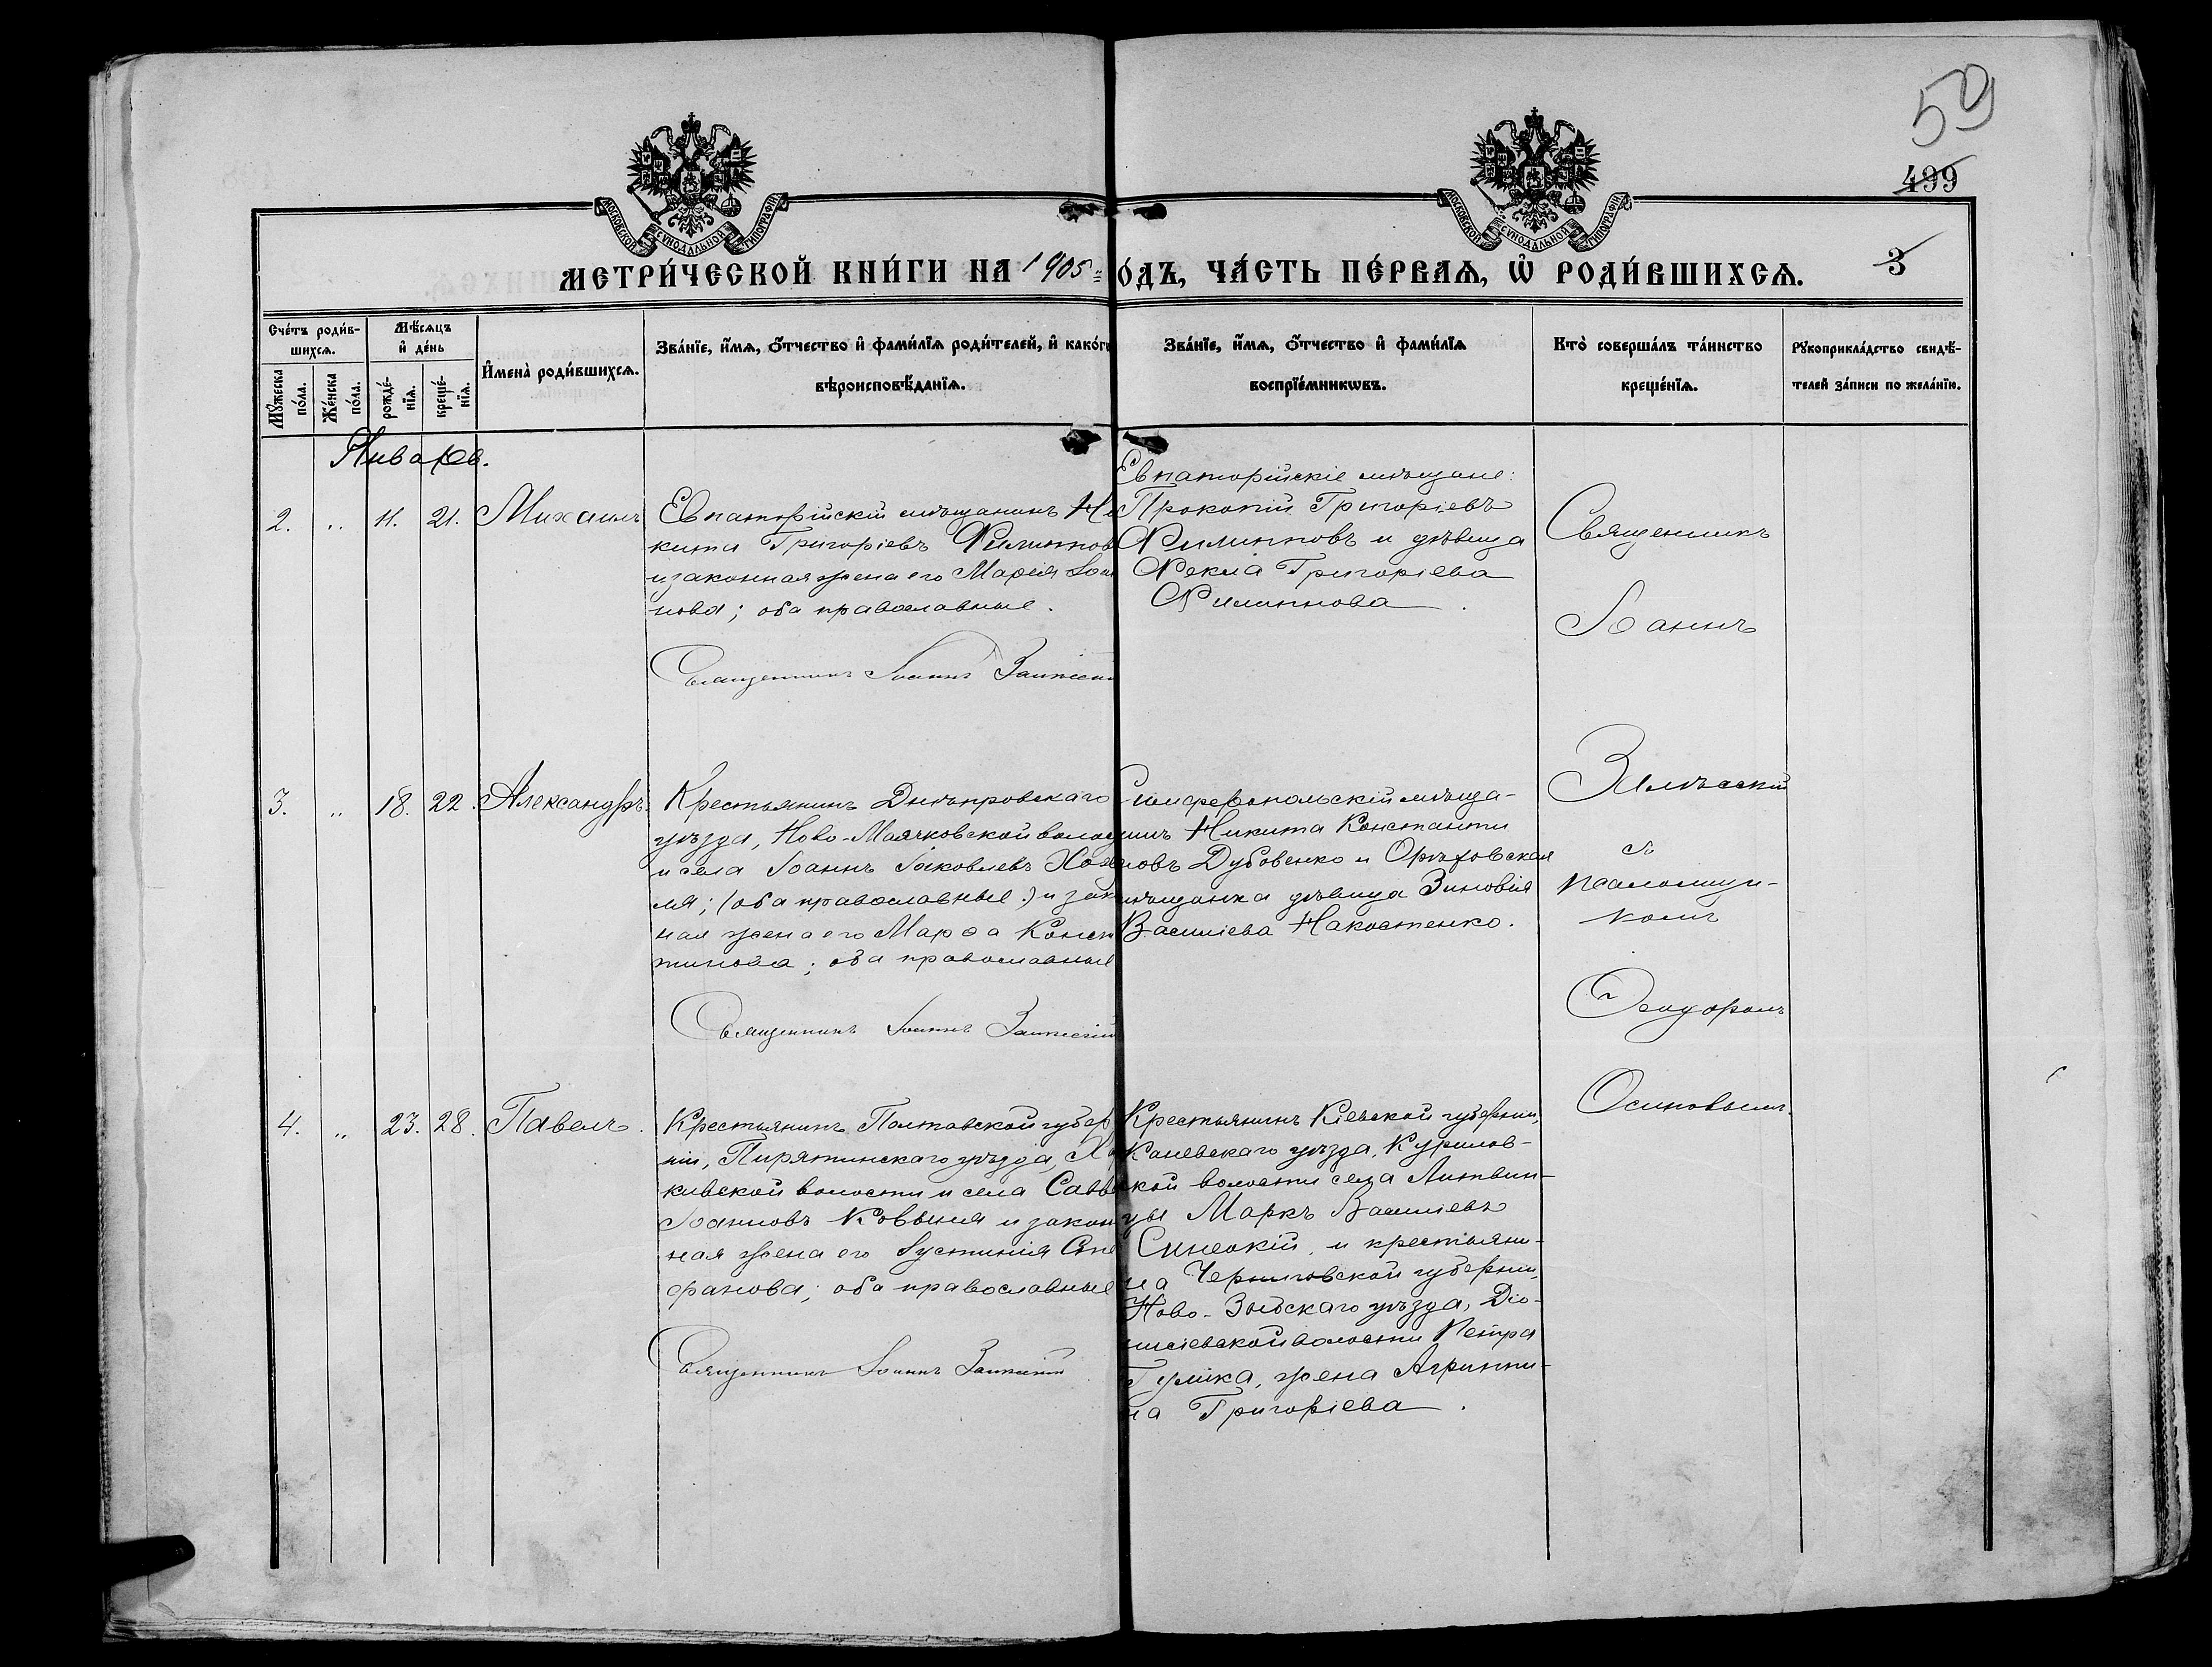 59
499
МОСКОВСКОЙ СѴНОДАЛЬНОЙ ТИПОГРАФІИ
МОСКОВСКОЙ СѴНОДАЛЬНОЙ ТИПОГРАФІИ
МЕТРИ́ЧЕСКОЙ КНИ́ГИ НА 1905 ОДЪ, ЧА́СТЬ ПЕ́РВАѦ, Ѡ҆ РОДИ́ВШИХСѦ. 3
Сче́тъ роди́в-
шихсѧ.
Мꙋ́жеска
по́ла.
Же́нска
по́ла.
Мѣ́сѧцъ
и҆ де́нь
рожде́-
нїѧ.
креще́-
нїѧ.
И҆мена̀ роди́вшихсѧ.
Зва́нїе, и҆́мѧ, ѻ҆́тчество и҆ фами́лїѧ роди́телей, и҆ како́г
вѣроисповѣ́данїѧ.
Зва́нїе, и҆́мѧ, ѻ҆́тчество и҆ фами́лїѧ
воспрїе́мникѡвъ.
Кто̀ соверша́лъ та́инство
креще́нїѧ.
Рꙋкоприкла́дство свидѣ́-
телей за́писи по жела́нїю.
Январь.
2. „ 11. 21. Михаилъ
Евпаторійскій мѣщанинъ Ни
кита Григоріевъ Филиппов
и законная жена его Марія Іоан
нова; оба православные.
Священникъ Іоаннъ
Евпаторійскіе мѣщане:
Прокопій Григоріевъ
Филипповъ и дѣвица
Фекла Григоріева
Филиппова.
Священникъ
Іоаннъ
3. „ 18. 22. Александръ.
Крестьянинъ Днѣпровскаго
уѣзда, Ново-Маячковской волос
и села Іоаннъ Іаковлевъ
мя; (оба православные.) и зак
ная жена его Марѳа Конст
тинова; оба православные
Священникъ Іоаннъ
Симферопольскій мѣща-
нинъ Никита Константи
новъ Дубовенко и Орѣховская
мѣщанка дѣвица Зиновія
Василіева Накостенко.
съ
псаломщи-
комъ
Ѳеодоромъ
Осиповымъ.
4. „ 23. 28. Павелъ.
Крестьянинъ Полтавской губер
ніи, Пирятинскаго уѣзда,
кивской волости и села Савв
Іоанновъ Ковыня и закон
ная жена его Іустинія Сте
фанова; оба православные
Священникъ Іоаннъ
Крестьянинъ Кіевской губерніи,
Каневскаго уѣзда, Курилов-
кой волости села Литвин-
цы Маркъ Василіевъ
Синецкій, и крестьяни-
на Черниговской губерніи,
Ново-Зыбскаго уѣзда, Діо-
нисіевской волости Петра
Гулика, жена Агриппи-
на Григоріева.